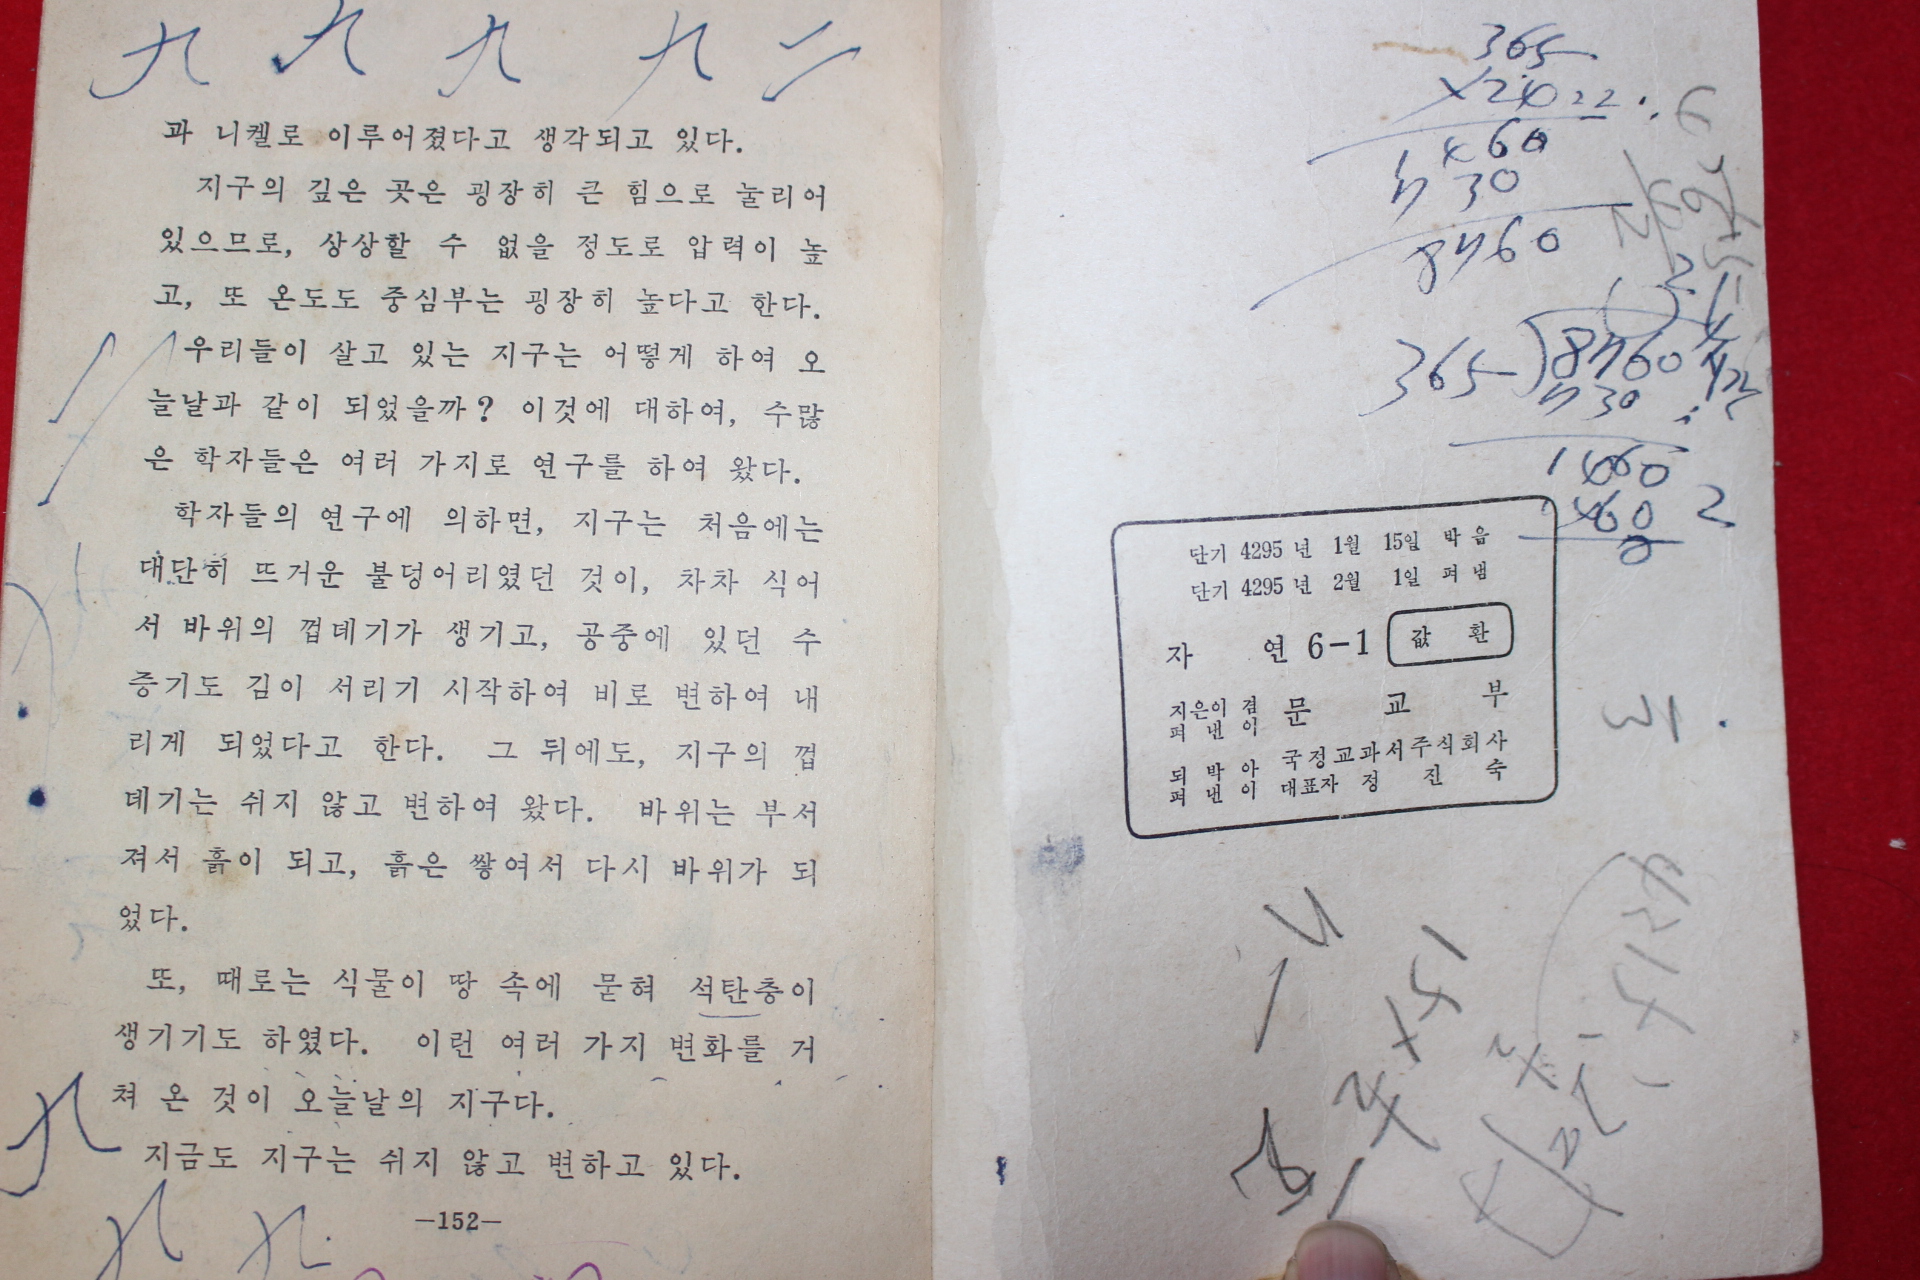 九 九 九 九 二
과 니켈로 이루어졌다고 생각되고 있다.
지구의 깊은 곳은 굉장히 큰 힘으로 눌리어
있으므로, 상상할 수 없을 정도로 압력이 높
고, 또 온도도 중심부는 굉장히 높다고 한다.
우리들이 살고 있는 지구는 어떻게 하여 오
늘날과 같이 되었을까? 이것에 대하여, 수많
은 학자들은 여러 가지로 연구를 하여 왔다.
학자들의 연구에 의하면, 지구는 처음에는
대단히 뜨거운 불덩어리였던 것이, 차차 식어
서 바위의 껍데기가 생기고, 공중에 있던 수
증기도 김이 서리기 시작하여 비로 변하여 내
리게 되었다고 한다. 그 뒤에도, 지구의 껍
데기는 쉬지 않고 변하여 왔다. 바위는 부서
져서 흙이 되고, 흙은 쌓여서 다시 바위가 되
었다.
또, 때로는 식물이 땅 속에 묻혀 석탄층이
생기기도 하였다. 이런 여러 가지 변화를 거
쳐 온 것이 오늘날의 지구다.
지금도 지구는 쉬지 않고 변하고 있다.
九
九 九
—152—
365
8760
365)8760
730
1460
단기 4295년 1월 15일 박음
단기 4295년 2월 1일 펴냄
자 연 6-1 값 환
지은이 겸 펴낸이 문 교 부
되박아 펴낸이 국정교과서주식회사
대표자 정 진 숙